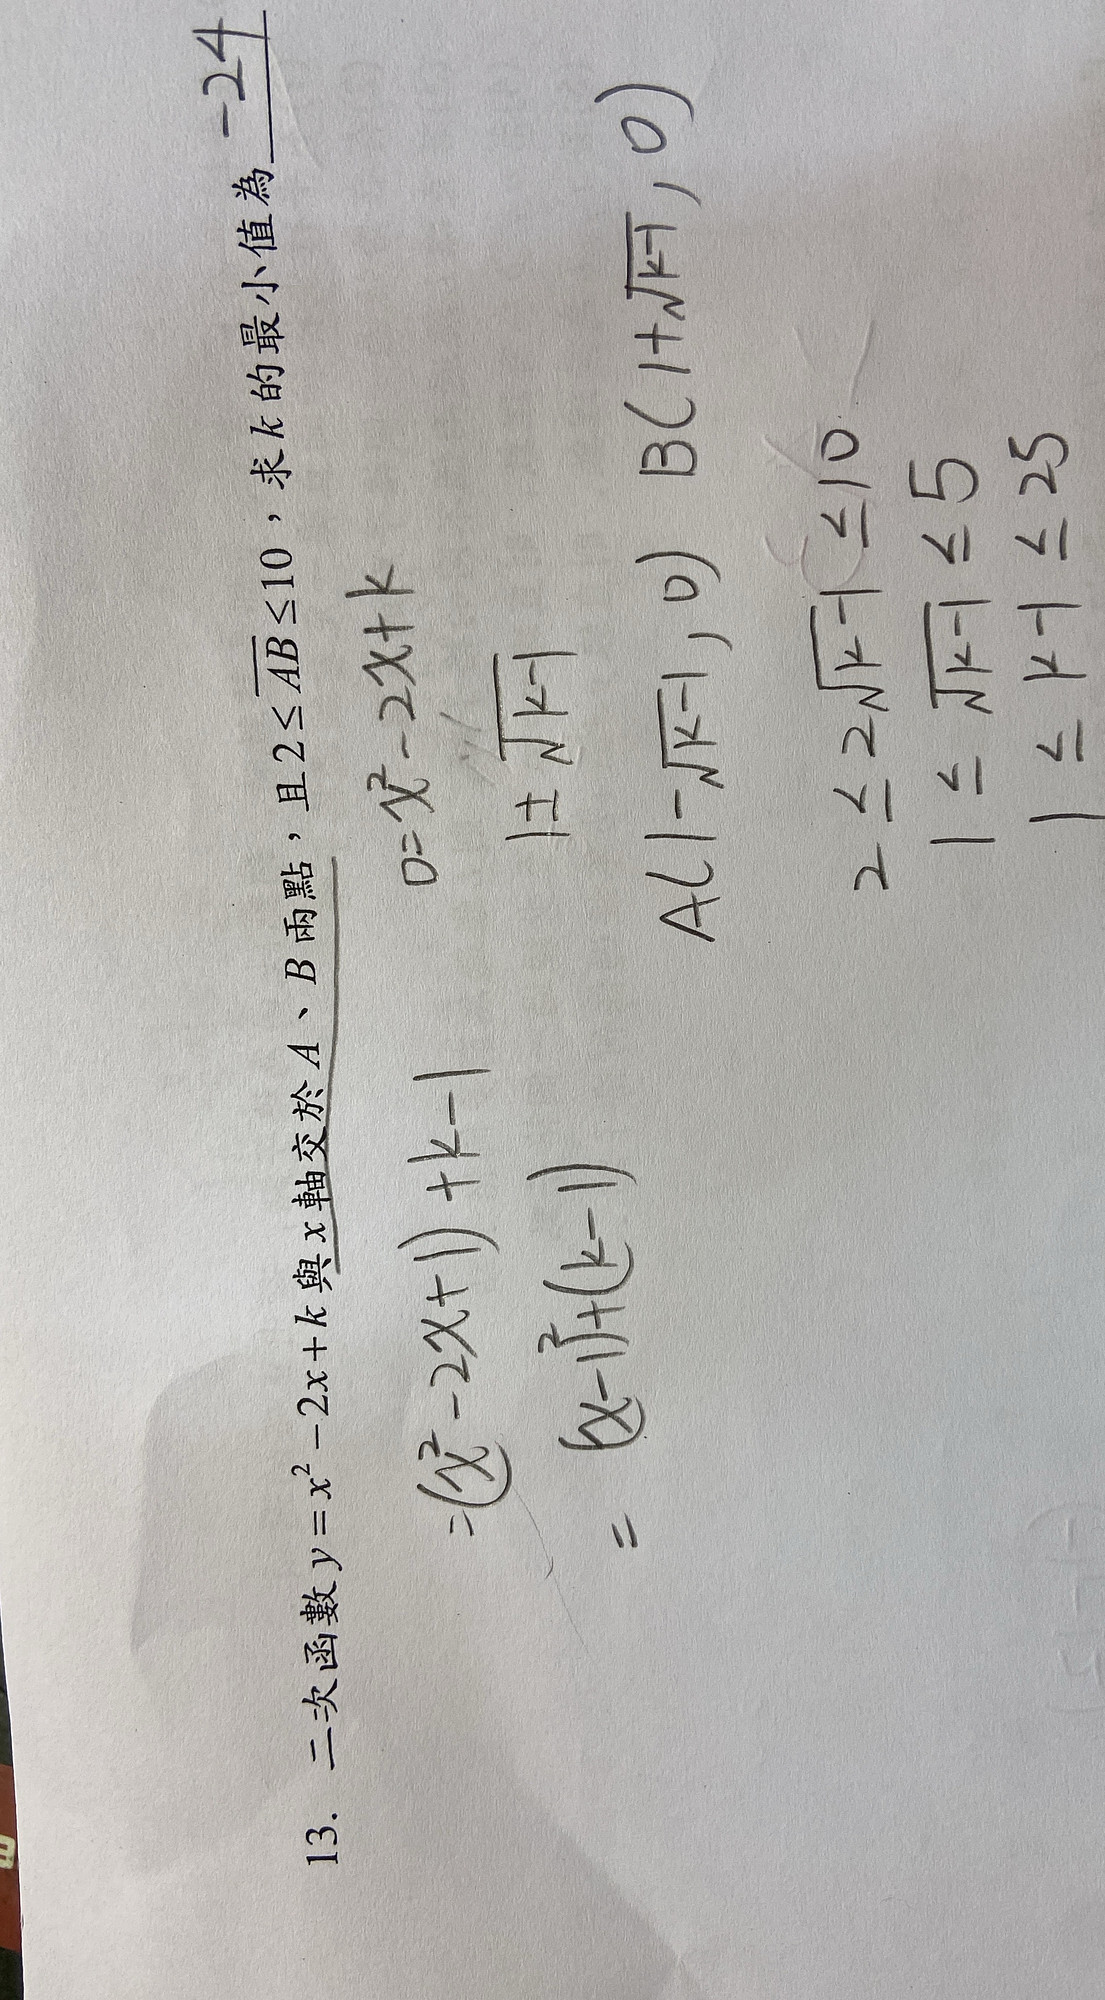 13. 二次函數 y = x² − 2x + k 與 x 軸交於 A、B 兩點,且 2 ≤ \overline{AB} ≤ 10,求 k 的最小值為 -24
= (x² - 2x + 1) + k - 1
= (x-1)² + (k-1)
0 = x² - 2x + k
1 ± √(k-1)
A(1-√(k-1), 0) B(1+√(k-1), 0)
2 ≤ 2√(k-1) ≤ 10
1 ≤ √(k-1) ≤ 5
1 ≤ k-1 ≤ 25